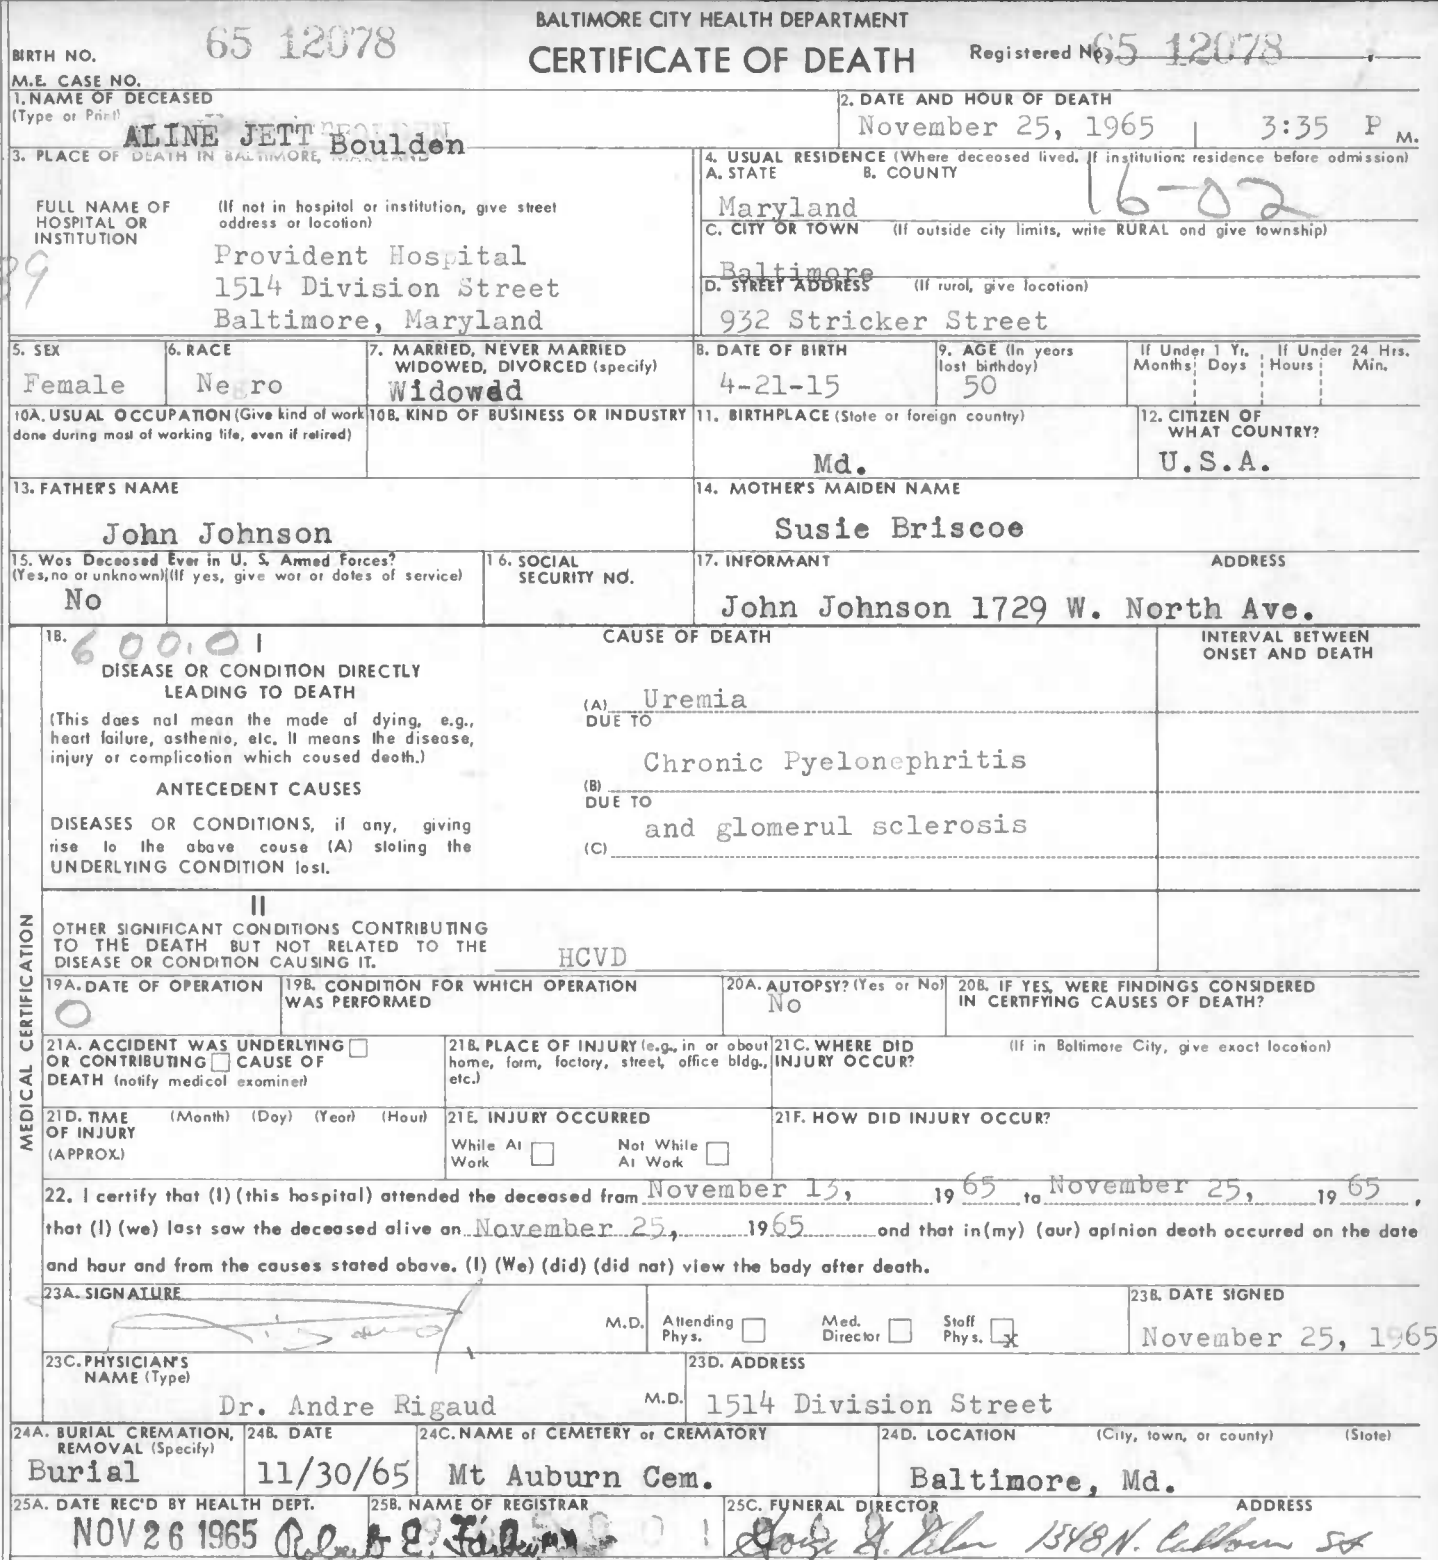 BALTIMORE CITY HEALTH DEPARTMENT
CERTIFICATE OF DEATH
BIRTH NO. 65 12078
Registered No. 65 12078
M.E. CASE NO.
1. NAME OF DECEASED
(Type or Print)
ALINE JETT Boulden
2. DATE AND HOUR OF DEATH
November 25, 1965 | 3:35 P M.
3. PLACE OF DEATH IN BALTIMORE, MARYLAND
FULL NAME OF HOSPITAL OR INSTITUTION
(If not in hospital or institution, give street address or location)
39
Provident Hospital
1514 Division Street
Baltimore, Maryland
4. USUAL RESIDENCE (Where deceased lived. If institution: residence before admission)
A. STATE B. COUNTY
Maryland 16-02
C. CITY OR TOWN (If outside city limits, write RURAL and give township)
Baltimore
D. STREET ADDRESS (If rural, give location)
932 Stricker Street
5. SEX
Female
6. RACE
Negro
7. MARRIED, NEVER MARRIED
WIDOWED, DIVORCED (specify)
Widowed
8. DATE OF BIRTH
4-21-15
9. AGE (In years
last birthday)
50
If Under 1 Yr. If Under 24 Hrs.
Months Days Hours Min.
10A. USUAL OCCUPATION (Give kind of work
done during most of working life, even if retired)
10B. KIND OF BUSINESS OR INDUSTRY
11. BIRTHPLACE (State or foreign country)
Md.
12. CITIZEN OF
WHAT COUNTRY?
U.S.A.
13. FATHER'S NAME
John Johnson
14. MOTHER'S MAIDEN NAME
Susie Briscoe
15. Was Deceased Ever in U. S. Armed Forces?
(Yes, no or unknown) (If yes, give war or dates of service)
No
16. SOCIAL
SECURITY NO.
17. INFORMANT ADDRESS
John Johnson 1729 W. North Ave.
18. 600.0 I
CAUSE OF DEATH
INTERVAL BETWEEN
ONSET AND DEATH
DISEASE OR CONDITION DIRECTLY
LEADING TO DEATH
(This does not mean the mode of dying, e.g.,
heart failure, asthenia, etc. It means the disease,
injury or complication which caused death.)
ANTECEDENT CAUSES
DISEASES OR CONDITIONS, if any, giving
rise to the above cause (A) stating the
UNDERLYING CONDITION last.
(A) Uremia
DUE TO
Chronic Pyelonephritis
(B)
DUE TO
and glomerul sclerosis
(C)
II
OTHER SIGNIFICANT CONDITIONS CONTRIBUTING
TO THE DEATH BUT NOT RELATED TO THE
DISEASE OR CONDITION CAUSING IT.
HCVD
MEDICAL CERTIFICATION
19A. DATE OF OPERATION
0
19B. CONDITION FOR WHICH OPERATION
WAS PERFORMED
20A. AUTOPSY? (Yes or No)
No
20B. IF YES, WERE FINDINGS CONSIDERED
IN CERTIFYING CAUSES OF DEATH?
21A. ACCIDENT WAS UNDERLYING
OR CONTRIBUTING CAUSE OF
DEATH (notify medical examiner)
21B. PLACE OF INJURY (e.g., in or about
home, farm, factory, street, office bldg.,
etc.)
21C. WHERE DID
INJURY OCCUR?
(If in Baltimore City, give exact location)
21D. TIME (Month) (Day) (Year) (Hour)
OF INJURY
(APPROX.)
21E. INJURY OCCURRED
While At Work
Not While At Work
21F. HOW DID INJURY OCCUR?
22. I certify that (I) (this hospital) attended the deceased from November 13, 19 65 to November 25, 19 65,
that (I) (we) last saw the deceased alive on November 25, 19 65 and that in (my) (our) opinion death occurred on the date
and hour and from the causes stated above. (I) (We) (did) (did not) view the body after death.
23A. SIGNATURE
M.D.
Attending Phys.
Med. Director
Staff Phys. x
23B. DATE SIGNED
November 25, 1965
23C. PHYSICIAN'S
NAME (Type)
Dr. Andre Rigaud M.D.
23D. ADDRESS
1514 Division Street
24A. BURIAL CREMATION,
REMOVAL (Specify)
Burial
24B. DATE
11/30/65
24C. NAME of CEMETERY or CREMATORY
Mt Auburn Cem.
24D. LOCATION (City, town, or county) (State)
Baltimore, Md.
25A. DATE REC'D BY HEALTH DEPT.
NOV 26 1965
25B. NAME OF REGISTRAR
Robert E.
25C. FUNERAL DIRECTOR ADDRESS
1348 N. Calhoun St